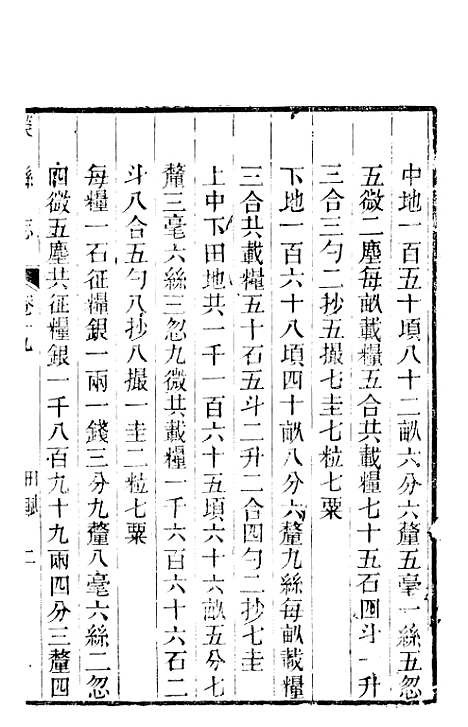 中地一百五十頃八十二畝六分六釐五毫一絲五忽
五微二塵每畝載糧五合共載糧七十五石四斗一升
三合三勺二抄五撮七圭七粒七粟
下地一百六十八頃四十畝八分六釐九絲每畝載糧
三合共載糧五十石五斗二升二合四勺二抄七圭
上中下田地共一千一百六十五頃六十六畝五分七
釐三毫六絲三忽九微共載糧一千六百六十六石二
斗八合五勺八抄八撮一圭二粒七粟
每糧一石征糧銀一兩一錢三分九釐八毫六絲二忽
四微五塵共征糧銀一千八百九十九兩四分三釐四
縣志
卷九
田賦
二